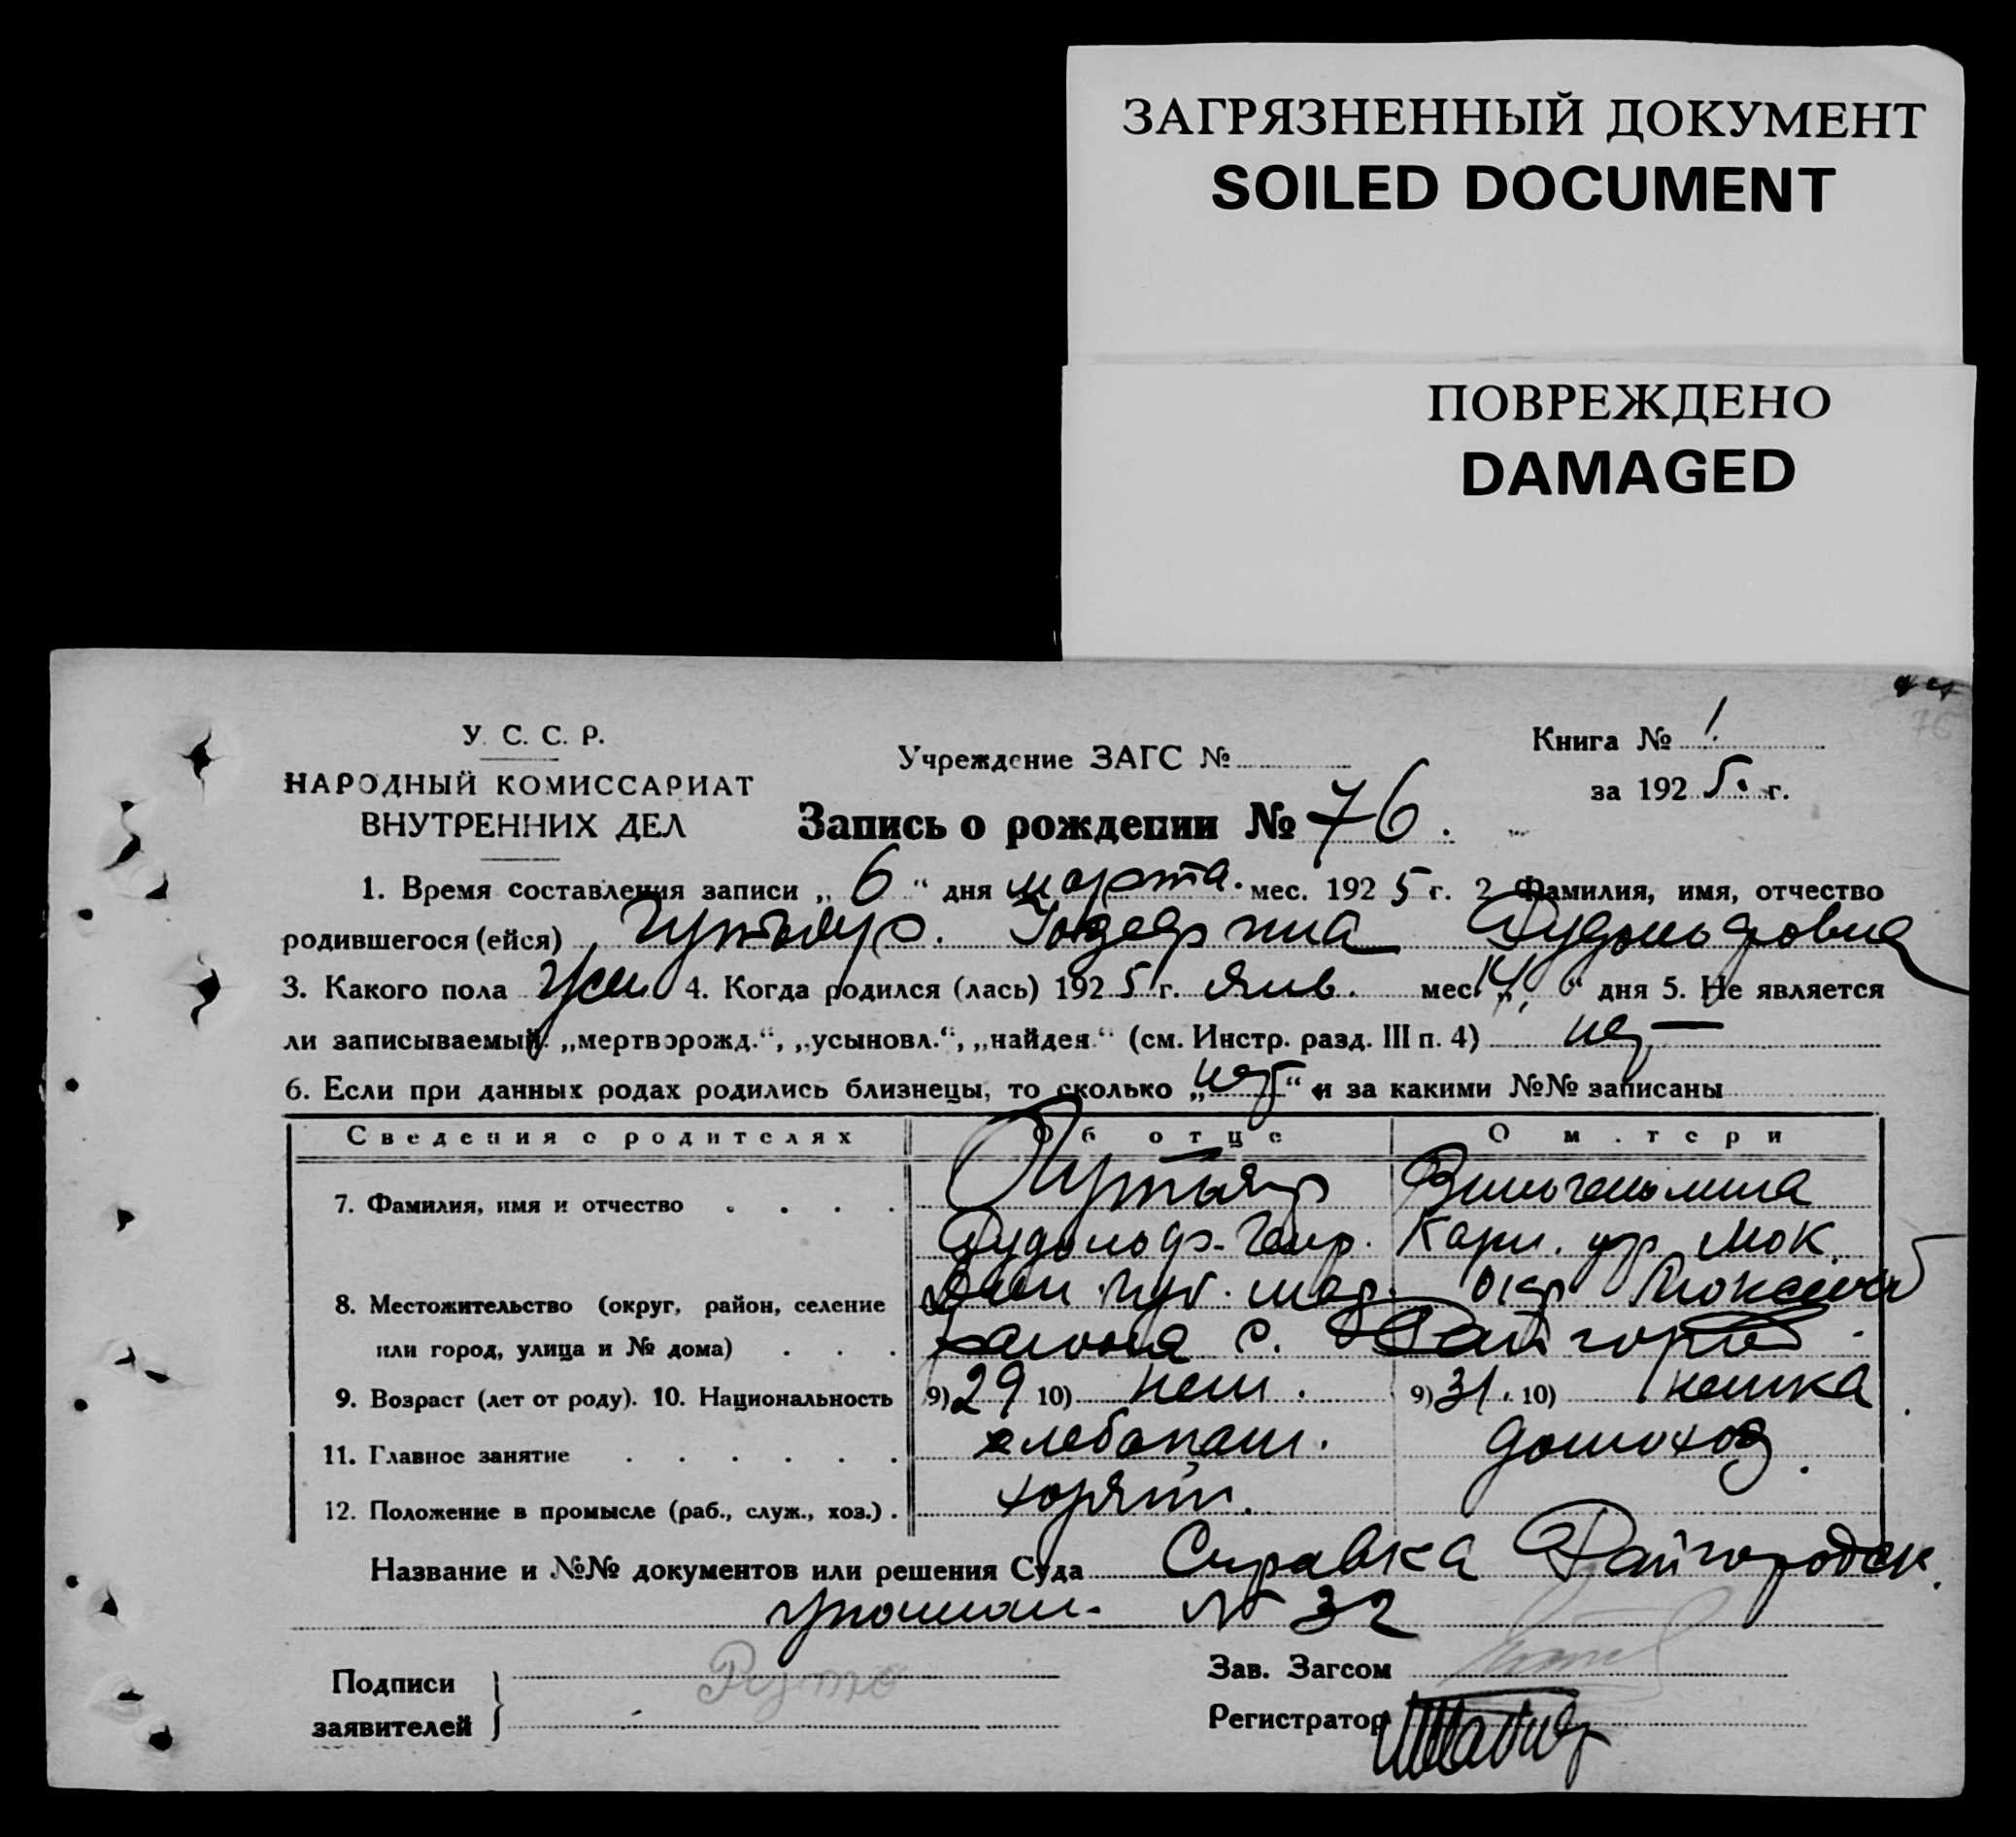 ЗАГРЯЗНЕННЫЙ ДОКУМЕНТ
SOILED DOCUMENT
ПОВРЕЖДЕНО
DAMAGED
76
У. С. С. Р.
НАРОДНЫЙ КОМИССАРИАТ
ВНУТРЕННИХ ДЕЛ
Учреждение ЗАГС №
Книга № 1.
за 1925. г.
Запись о рождении № 76.
1. Время составления записи „6“ дня марта. мес. 1925 г. 2 Фамилия, имя, отчество
родившегося (ейся) Рудольфовна
3. Какого пола жен. 4. Когда родился (лась) 1925 г. Янв. мес. „14“ дня 5. Не является
ли записываемый „мертворожд.“, „усыновл.“, „найден.“ (см. Инстр. разд. III п. 4) нет
6. Если при данных родах родились близнецы, то сколько „нет“ и за какими №№ записаны
Сведения о родителях Об отце О матери
7. Фамилия, имя и отчество
Рудольф Карл.
8. Местожительство (округ, район, селение
или город, улица и № дома) с. Райгород
9. Возраст (лет от роду). 10. Национальность 9) 29 10) нем. 9) 31. 10) немка
11. Главное занятие хлебопаш. домохоз.
12. Положение в промысле (раб., служ., хоз.)
Название и №№ документов или решения Суда Справка Райгородск.
№ 32
Подписи
заявителей
Зав. Загсом
Регистратор